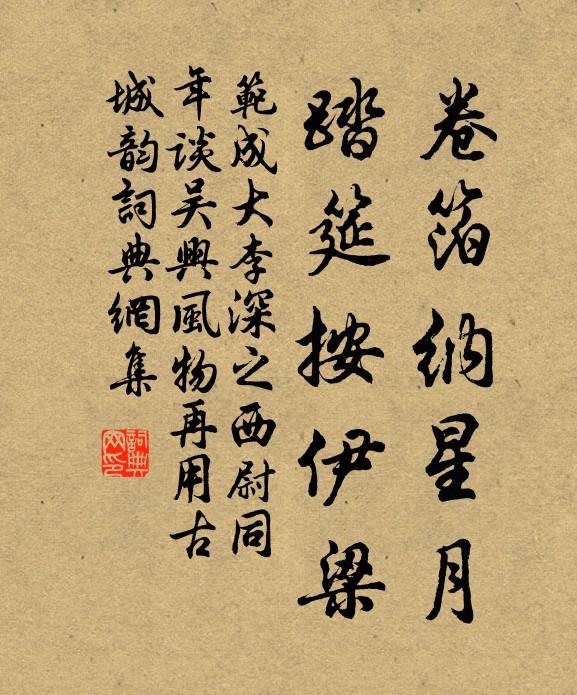 卷箔納星月
踏筵按伊梁
範成大李深之西尉同
年談吳興風物再用古
城韵詞典網集
詞典網印